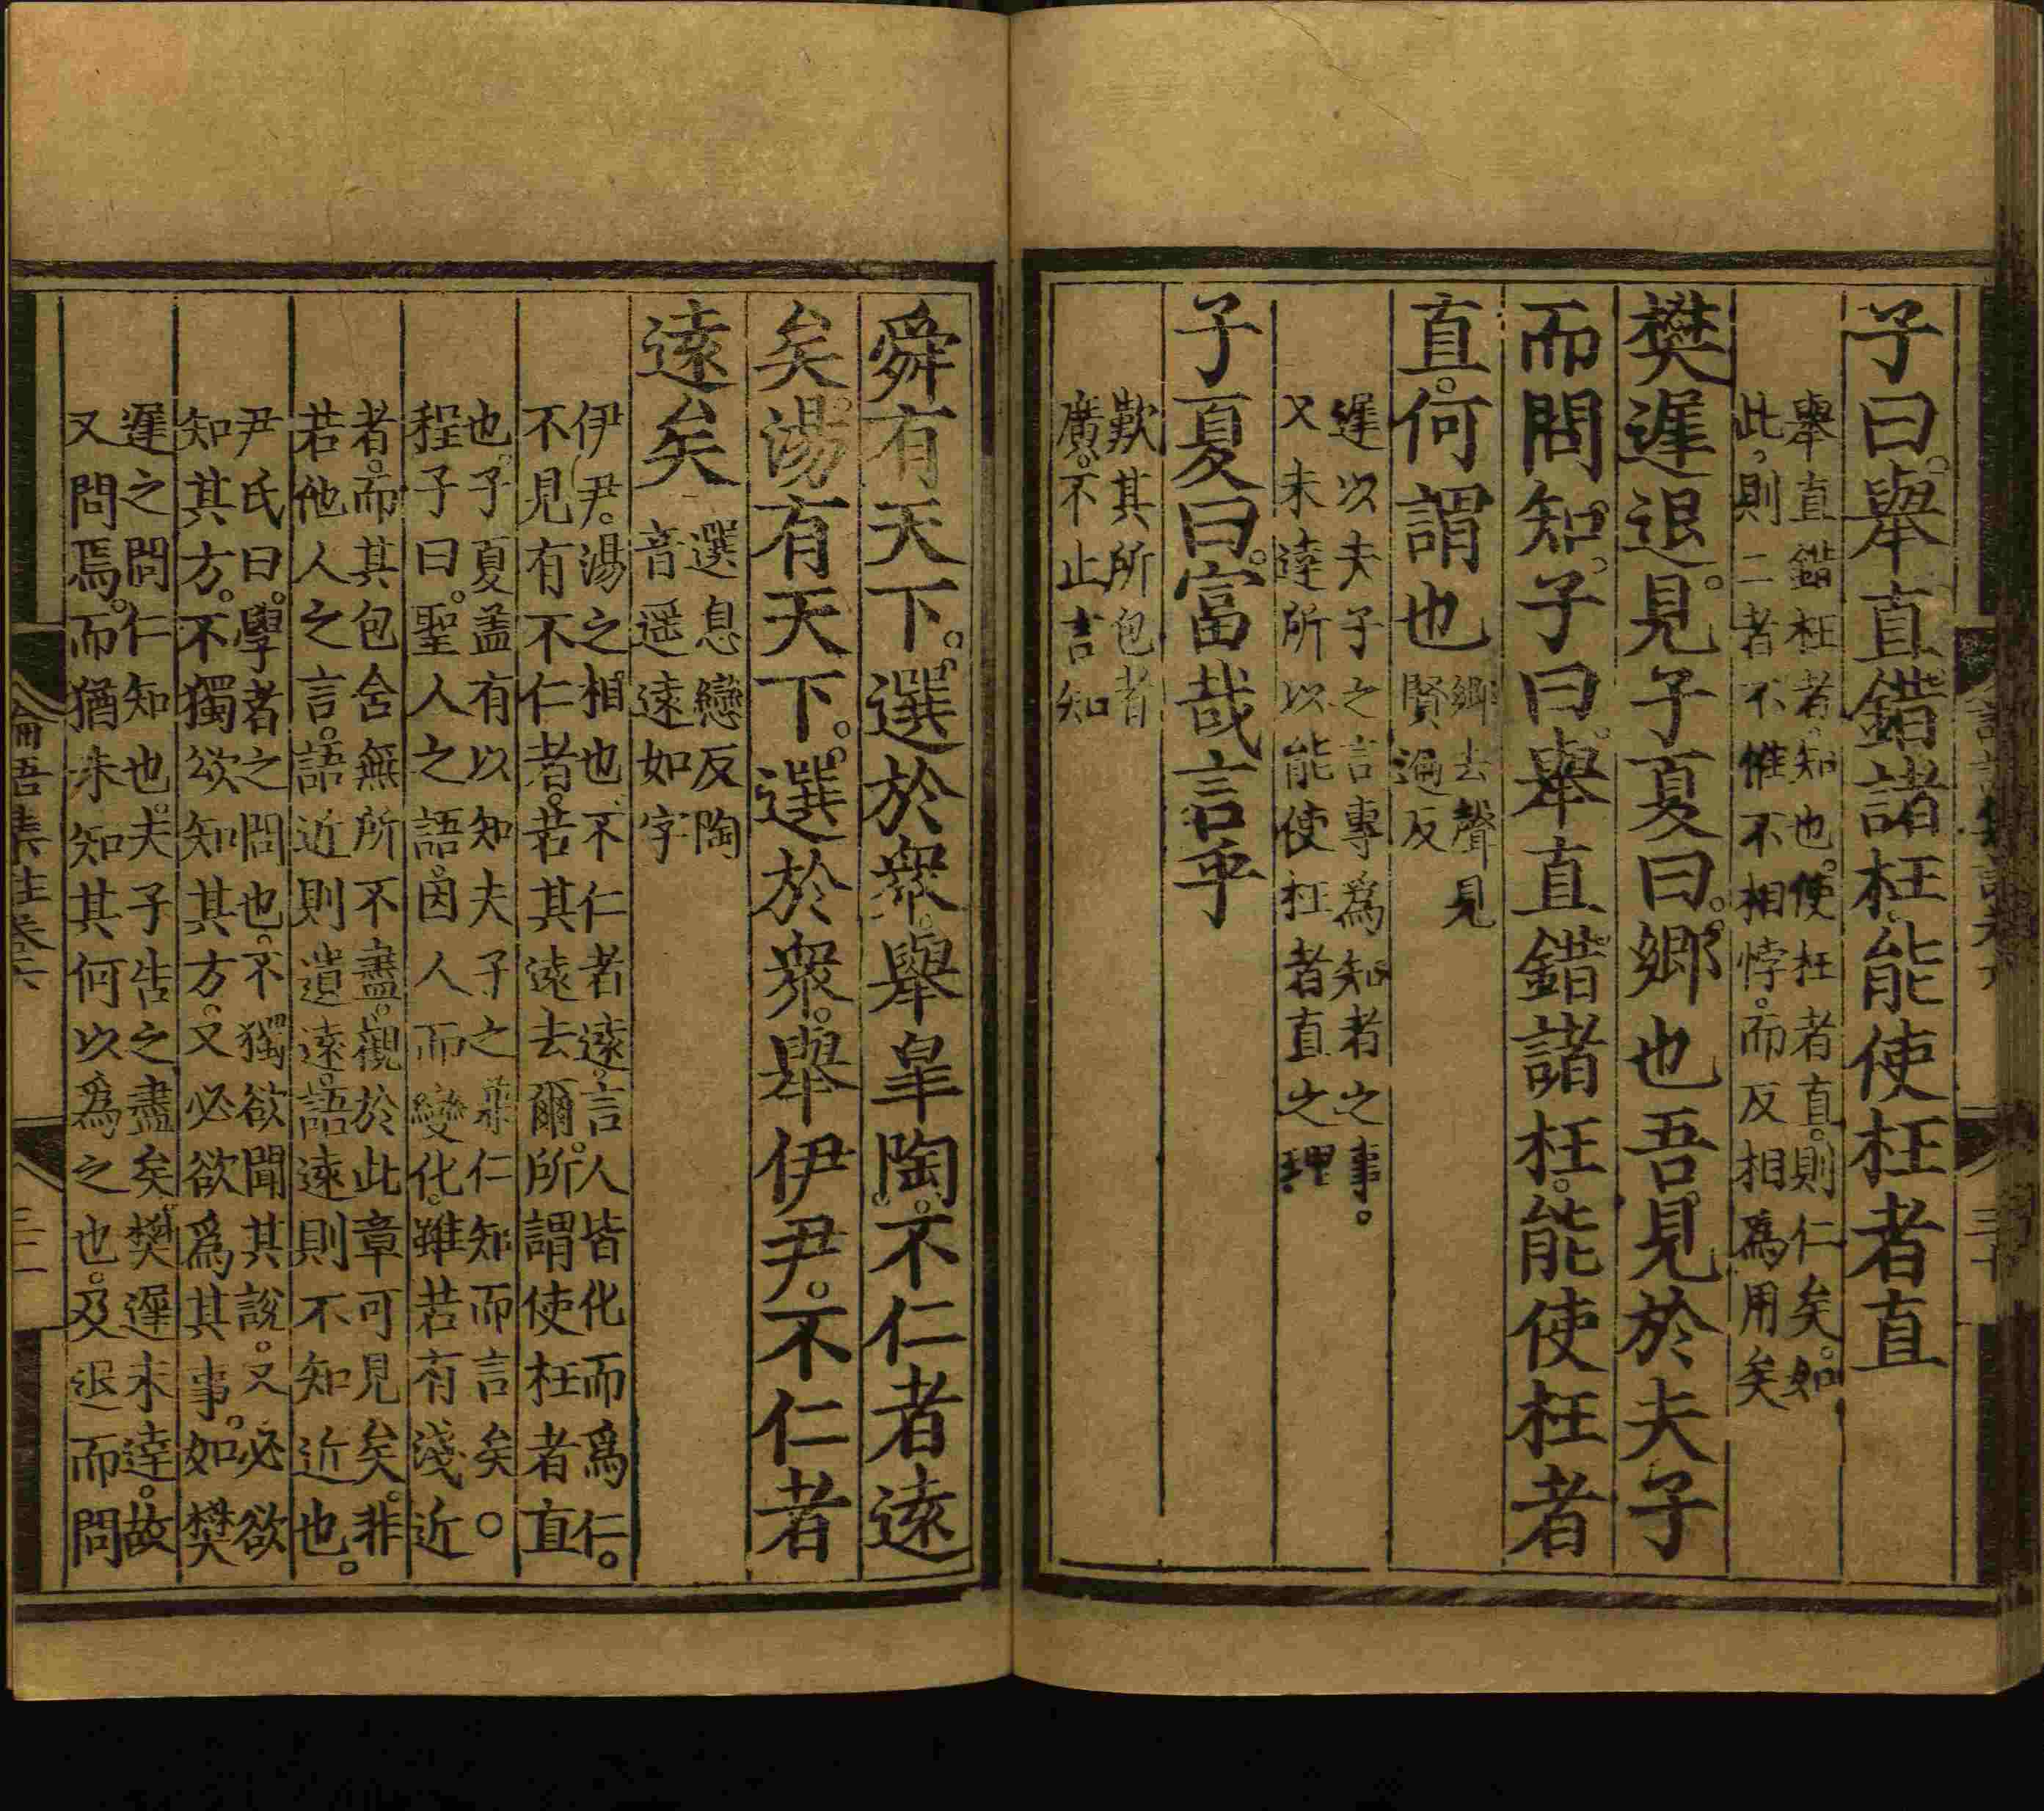 子曰。舉直錯諸枉。能使枉者直
舉直錯枉者。知也。使枉者直。則仁矣。如
此。則二者不惟不相悖。而反相爲用矣
樊遲退。見子夏曰。郷也吾見於夫子
而問知。子曰。舉直錯諸枉。能使枉者
直。何謂也
郷去聲見
賢遍反
遲以夫子之言專爲知者之事。
又未達所以能使枉者直之理
子夏曰。富哉言乎
歎其所包者
廣。不止言知
舜有天下。選於衆。舉皐陶。不仁者遠
矣。湯有天下。選於衆。舉伊尹。不仁者
遠矣
選息戀反陶
音遥遠如字
伊尹。湯之相也。不仁者遠。言人皆化而爲仁。
不見有不仁者。若其遠去爾。所謂使枉者直
也。子夏盖有以知夫子之兼仁知而言矣。○
程子曰。聖人之語。因人而變化。雖若有淺近
者。而其包含無所不盡。觀於此章可見矣。非
若他人之言。語近則遺遠。語遠則不知近也。
尹氏曰。學者之問也。不獨欲聞其說。又必欲
知其方。不獨欲知其方。又必欲爲其事。如樊
遲之問仁知也。夫子告之盡矣。樊遲未達。故
又問焉。而猶未知其何以爲之也。及退而問
論語集注卷六
三十一